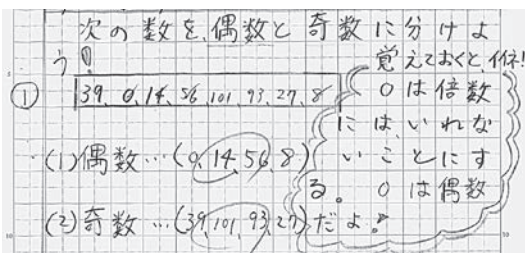 次の数を、偶数と奇数に分けよ
う!
①
39、0、14、56、101、93、27、8
(1)偶数…(0、14、56、8)
(2)奇数…(39、101、93、27)
覚えておくと、イイネ!
0は倍数
には、いれな
いことにす
る。0は偶数
だよ!